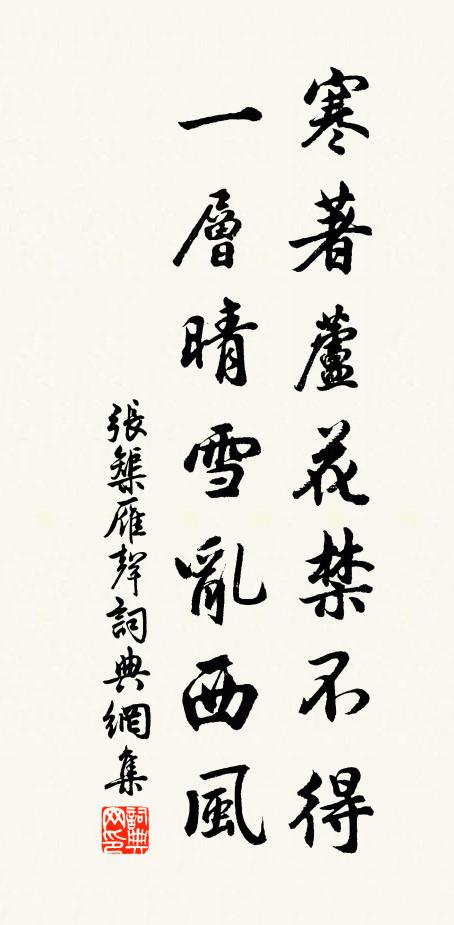 寒著蘆花禁不得
一層晴雪亂西風
張榘雁聲詞典網集
詞典网印